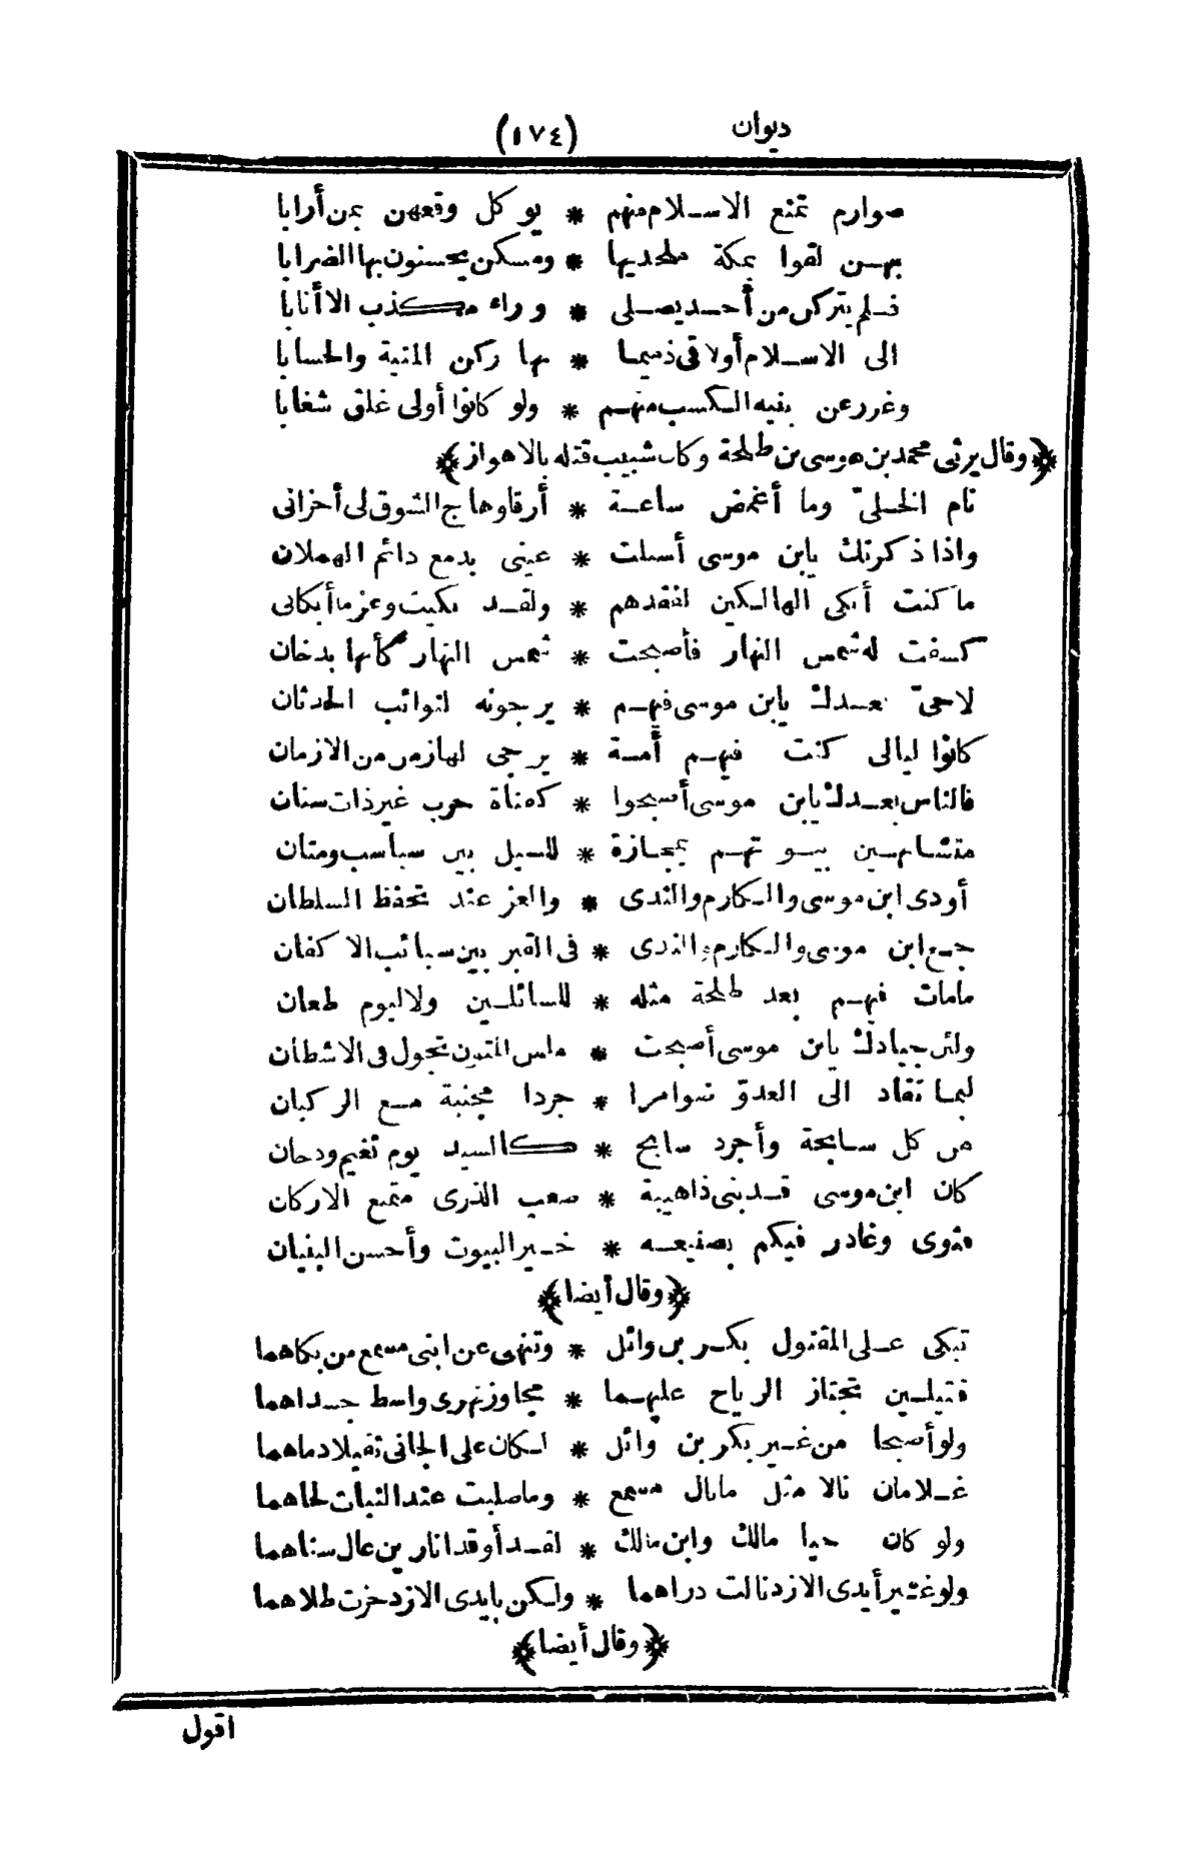 ديوان (١٧٤)
صوارم تمنع الاسلام منهم * يوكل وقعهن بمن أرابا
بهن لقوا بمكة ملحديها * ومسكن يحسنون بها الضرابا
فلم يتركن من أحد يصلى * وراء مكذب الا أنابا
الى الاسلام أولاقى ذميما * بها ركن المنية والحسابا
وغرر عن بنيه الكسب منهم * ولو كانوا أولى غلق شغابا
﴿وقال يرثى محمد بن موسى بن طلحة وكان شبيب قتله بالاهواز﴾
نام الخلىّ وما أغمض ساعة * أرقا وهاج الشوق لى أحزانى
واذا ذكرتك يابن موسى أسبلت * عينى بدمع دائم الهملان
ما كنت أبكى الهالكين لفقدهم * ولقد بكيت وعز ما أبكانى
كسفت له شمس النهار فأصبحت * شمس النهار كأنها بدخان
لاحىّ بعدك يابن موسى فيهم * يرجونه لنوائب الحدثان
كانوا ليالى كنت فيهم أمة * يرجى لها زمن من الازمان
فالناس بعدك يابن موسى أصبحوا * كقناة حرب غير ذات سنان
متشابهين بيوتهم بمجازة * للسيل بين سباسب ومتان
أودى ابن موسى والمكارم والندى * والعز عند تحفظ السلطان
جمع ابن موسى والمكارم والندى * فى القبر بين سبائب الاكفان
مامات فيهم بعد طلحة مثله * للسائلين ولاليوم طعان
ولئن جيادك يابن موسى أصبحت * ملس المتون تجول فى الاشطان
لبما تقاد الى العدوّ ضوامرا * جردا مجنبة مع الركبان
من كل سابحة وأجرد سابح * كالسيد يوم تغيم ودخان
كان ابن موسى قد بنى ذاهيبة * صعب الذرى متمنع الاركان
فثوى وغادر فيكم بصنيعه * خير البيوت وأحسن البنيان
﴿وقال أيضا﴾
تبكى على المقتول بكر بن وائل * وتنهى عن ابنى مسمع من بكاهما
قتيلين تجتاز الرياح عليهما * مجاوز نهرى واسط جسداهما
ولو أصبحا من غير بكر بن وائل * لكان على الجانى ثقيلا دماهما
غلامان نالا مثل مانال مسمع * وماصليت عند النبات لحاهما
ولو كان حيا مالك وابن مالك * لقد أوقدا نارين عال سناهما
ولو غير أيدى الازد نالت دراهما * ولكن بايدى الازد حزت طلاهما
﴿وقال أيضا﴾
اقول